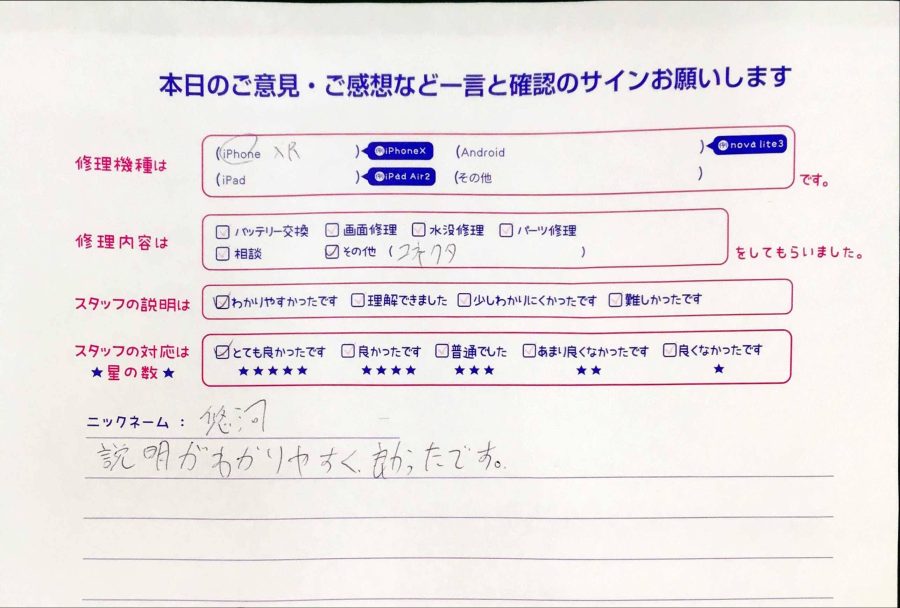 本日のご意見・ご感想など一言と確認のサインお願いします
修理機種は
(iPhone XR ) iPhoneX (Android ) nova lite3
(iPad ) iPad Air2 (その他 )
です。
修理内容は
バッテリー交換 画面修理 水没修理 パーツ修理
相談 その他 (コネクタ )
をしてもらいました。
スタッフの説明は わかりやすかったです 理解できました 少しわかりにくかったです 難しかったです
スタッフの対応は とても良かったです 良かったです 普通でした あまり良くなかったです 良くなかったです
★星の数★ ★★★★★ ★★★★ ★★★ ★★ ★
ニックネーム : 悠河
説明がわかりやすく、助かったです。